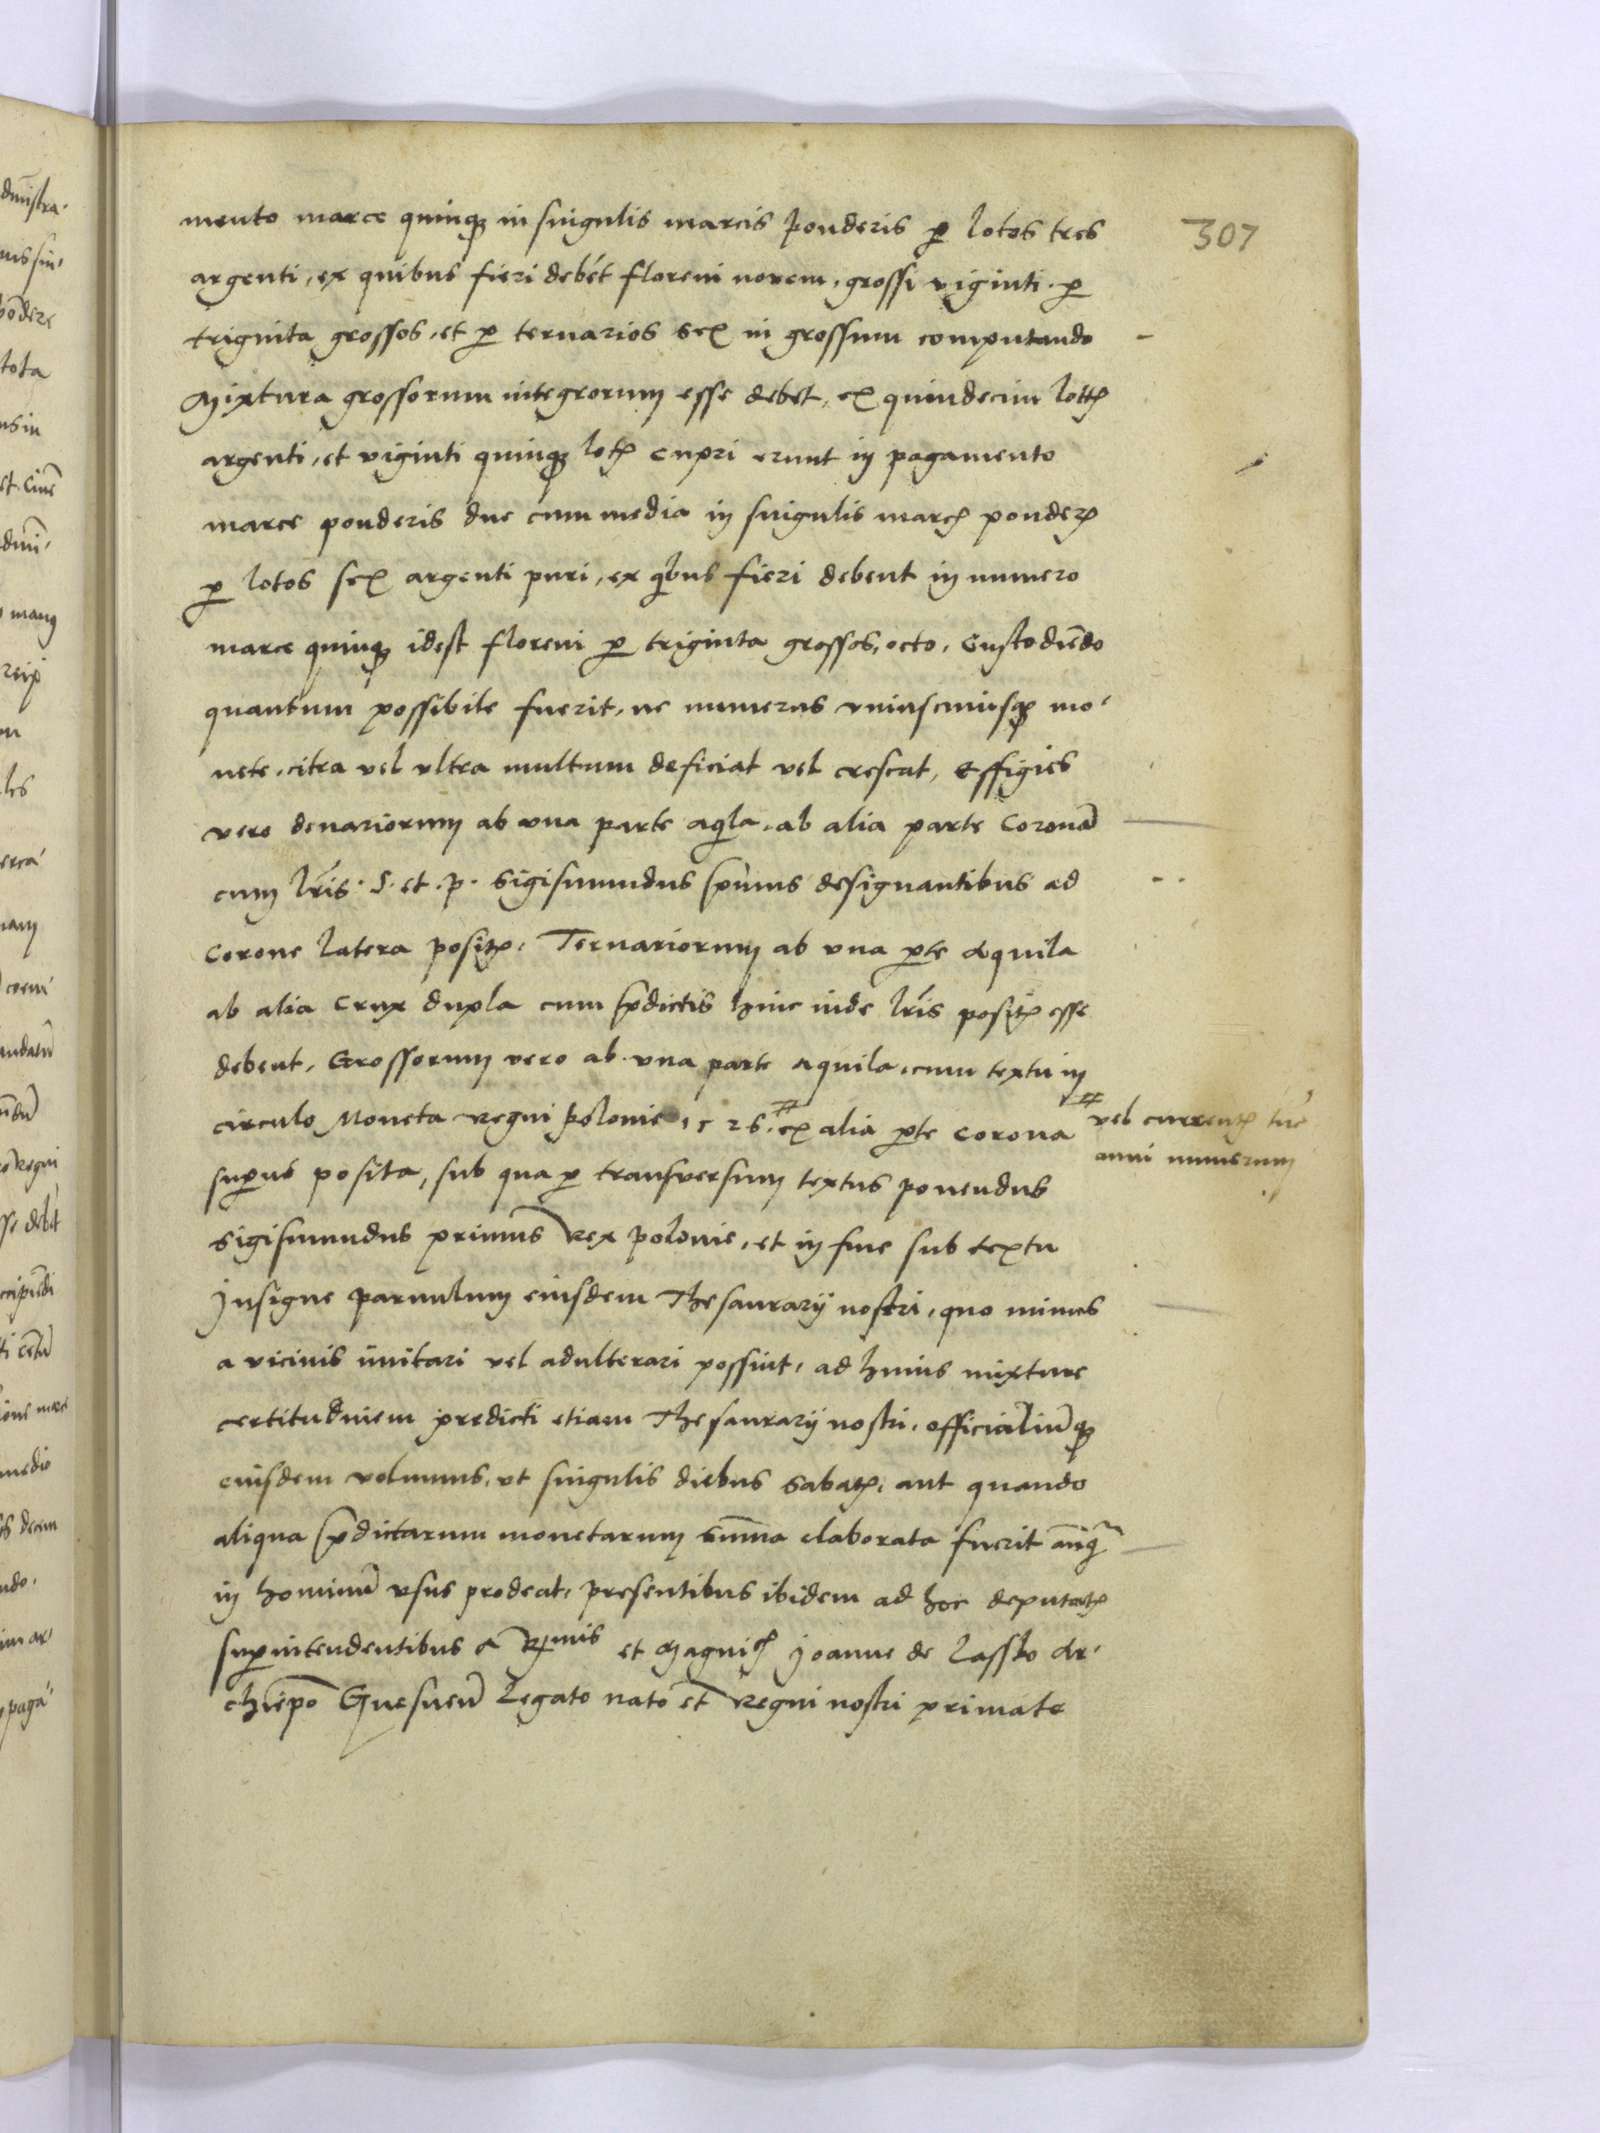 307
mento marce quinq₃ in singulis marcis ponderis ꝑ lotos tres
argenti, ex quibus fieri debēt floreni novem, grossi viginti. ꝑ
triginta grossos, et ꝑ ternarios sex in grossum computando
Mixtura grossorum integrorum esse debet, ex quindecim lotꝭ
argenti, et viginti quinq₃ lotꝭ cupri erunt in pagamento
marce ponderis due cum media in singulis marcꝭ ponderꝭ
ꝑ lotos sex argenti puri, ex qbus fieri debent in numero
marce quinq₃ idest floreni ꝑ triginta grossos, octo, Custodiēdo
quantum possibile fuerit, ne numerus vniuscuiusq₃ mo-
nete, citra vel vltra multum deficiat vel crescat, Effigies
vero denariorum ab vna parte aqla, ab alia parte Coronā
cum lrīs. S. et .p. Sigismundus prīmus designantibus ad
Corone latera positꝭ. Ternariorum ab vna ꝑte Aquila
ab alia Crux dupla cum p̄dictis hinc inde lrīs positꝭ esse
debent, Grossorum vero ab vna parte Aquila, cum textu in
circulo Moneta Regni polonie 1526 # ex alia ꝑte Corona
# vel currentꝭ tūc
anni numerum
suꝑius posita, sub qua ꝑ transversum textus ponendus
Sigismundus primus Rex polonie, et in fine sub textu
Insigne parvulum eiusdem Thesaurarij nostri, quo minus
a vicinis imitari vel adulterari possint, ad huius mixture
certitudinem predicti etiam Thesaurarij nostri, officialiūq₃
eiusdem volumus, vt singulis diebus Sabatꝭ, aut quando
aliqua p̄dictarum monetarum sum̄a elaborata fuerit anq̄
in hominū vsus prodeat, presentibus ibidem ad hoc deputatꝭ
suꝑintendentibus a Rmis et Magnicꝭ Joanne de Lassko Ar-
chiēpo Gnesnen̄ Legato nato et Regni nostri primate